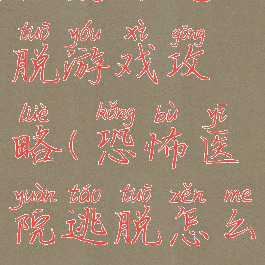 tuō yóu xì gōng
脱游戏攻
lüè kǒng bù yī
略(恐怖医
yuàn táo tuō zěn me
院逃脱怎么